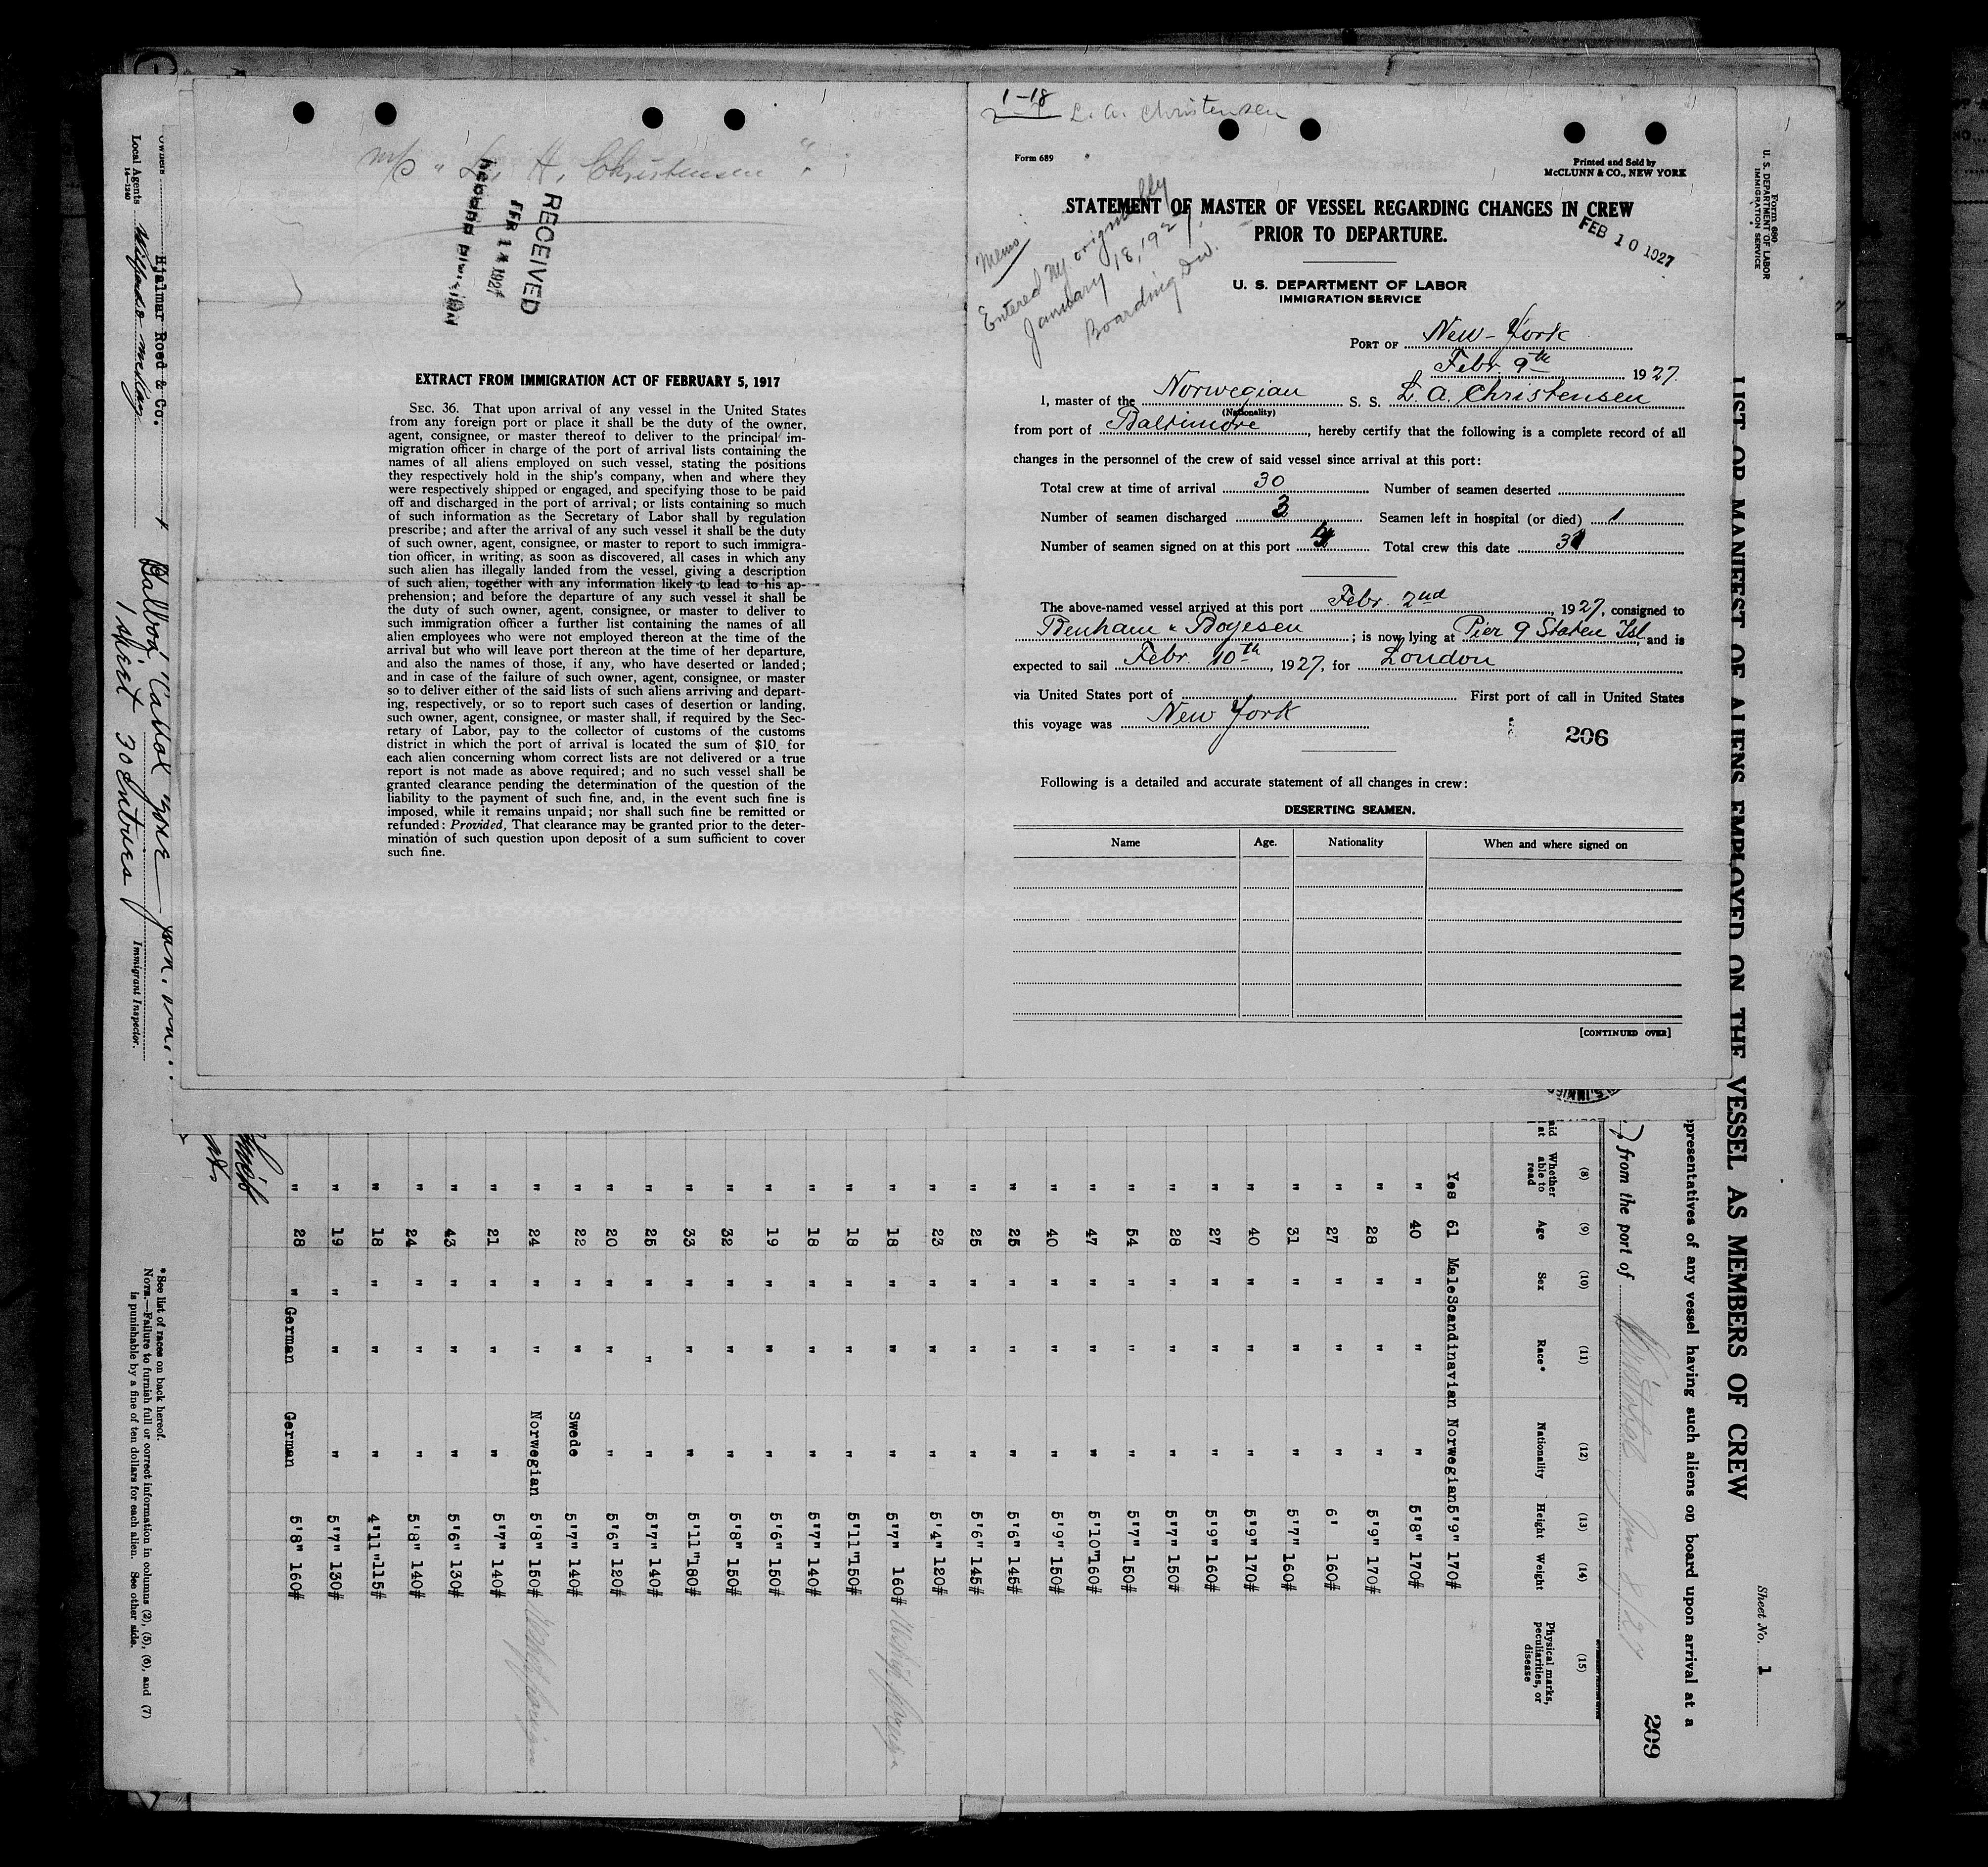 m/s "L. A. Christensen".
RECEIVED
FEB 14 1927
EXTRACT FROM IMMIGRATION ACT OF FEBRUARY 5, 1917
SEC. 36. That upon arrival of any vessel in the United States
from any foreign port or place it shall be the duty of the owner,
agent, consignee, or master thereof to deliver to the principal im-
migration officer in charge of the port of arrival lists containing the
names of all aliens employed on such vessel, stating the positions
they respectively hold in the ship's company, when and where they
were respectively shipped or engaged, and specifying those to be paid
off and discharged in the port of arrival; or lists containing so much
of such information as the Secretary of Labor shall by regulation
prescribe; and after the arrival of any such vessel it shall be the duty
of such owner, agent, consignee, or master to report to such immigra-
tion officer, in writing, as soon as discovered, all cases in which any
such alien has illegally landed from the vessel, giving a description
of such alien, together with any information likely to lead to his ap-
prehension; and before the departure of any such vessel it shall be
the duty of such owner, agent, consignee, or master to deliver to
such immigration officer a further list containing the names of all
alien employees who were not employed thereon at the time of the
arrival but who will leave port thereon at the time of her departure,
and also the names of those, if any, who have deserted or landed;
and in case of the failure of such owner, agent, consignee, or master
so to deliver either of the said lists of such aliens arriving and depart-
ing, respectively, or so to report such cases of desertion or landing,
such owner, agent, consignee, or master shall, if required by the Sec-
retary of Labor, pay to the collector of customs of the customs
district in which the port of arrival is located the sum of $10 for
each alien concerning whom correct lists are not delivered or a true
report is not made as above required; and no such vessel shall be
granted clearance pending the determination of the question of the
liability to the payment of such fine, and, in the event such fine is
imposed, while it remains unpaid; nor shall such fine be remitted or
refunded: Provided, That clearance may be granted prior to the deter-
mination of such question upon deposit of a sum sufficient to cover
such fine.
1-18
L. A. Christensen
Form 689
Printed and Sold by
McCLUNN & CO., NEW YORK
STATEMENT OF MASTER OF VESSEL REGARDING CHANGES IN CREW
PRIOR TO DEPARTURE.
FEB 10 1927
Memo.
Entered NY originally
January 18, 1927.
Boarding Div.
U. S. DEPARTMENT OF LABOR
IMMIGRATION SERVICE
PORT OF New-York
Febr. 9th 1927.
I, master of the Norwegian S. S. L. A. Christensen
(Nationality)
from port of Baltimore, hereby certify that the following is a complete record of all
changes in the personnel of the crew of said vessel since arrival at this port:
Total crew at time of arrival 30 Number of seamen deserted
Number of seamen discharged 3 Seamen left in hospital (or died) 1
Number of seamen signed on at this port 4 Total crew this date 31
The above-named vessel arrived at this port Febr. 2nd, 1927, consigned to
Benham & Boyesen; is now lying at Pier 9 Staten Isl and is
expected to sail Febr. 10th, 1927, for London
via United States port of First port of call in United States
this voyage was New York
206
Following is a detailed and accurate statement of all changes in crew:
DESERTING SEAMEN.
Name Age. Nationality When and where signed on
[CONTINUED OVER]
Form 680
U. S. DEPARTMENT OF LABOR
IMMIGRATION SERVICE
Sheet No. 1
LIST OR MANIFEST OF ALIENS EMPLOYED ON THE VESSEL AS MEMBERS OF CREW
presentatives of any vessel having such aliens on board upon arrival at a
209
from the port of Cristobal Jan 8/27
(8) (9) (10) (11) (12) (13) (14) (15)
Whether able to read Age Sex Race* Nationality Height Weight Physical marks, peculiarities, or disease
Yes 61 Male Scandinavian Norwegian 5'9" 170#
" 40 " " " 5'8" 170#
" 28 " " " 5'9" 170#
" 27 " " " 6' 160#
" 31 " " " 5'7" 160#
" 40 " " " 5'9" 170#
" 27 " " " 5'9" 160#
" 28 " " " 5'7" 150#
" 54 " " " 5'7" 150#
" 47 " " " 5'10" 160#
" 40 " " " 5'9" 150#
" 25 " " " 5'6" 145#
" 25 " " " 5'6" 145#
" 23 " " " 5'4" 120#
" 18 " " " 5'7" 160#
" 18 " " " 5'11" 150#
" 18 " " " 5'7" 140#
" 19 " " " 5'6" 150#
" 32 " " " 5'8" 150#
" 33 " " " 5'11" 180#
" 25 " " " 5'7" 140#
" 20 " " " 5'6" 120#
" 22 " " Swede 5'7" 140#
" 24 " " Norwegian 5'8" 150#
" 21 " " " 5'7" 140#
" 43 " " " 5'6" 130#
" 24 " " " 5'8" 140#
" 18 " " " 4'11" 115#
" 19 " " " 5'7" 130#
" 28 " German German 5'8" 160#
Balboa Canal Zone Jan.
1 sheet 30 Entries
Immigrant Inspector.
Owners Hjalmar Roed & Co.
Local Agents
14-1240
*See list of races on back hereof.
NOTE.—Failure to furnish full or correct information in columns (2), (5), (6), and (7)
is punishable by a fine of ten dollars for each alien. See other side.